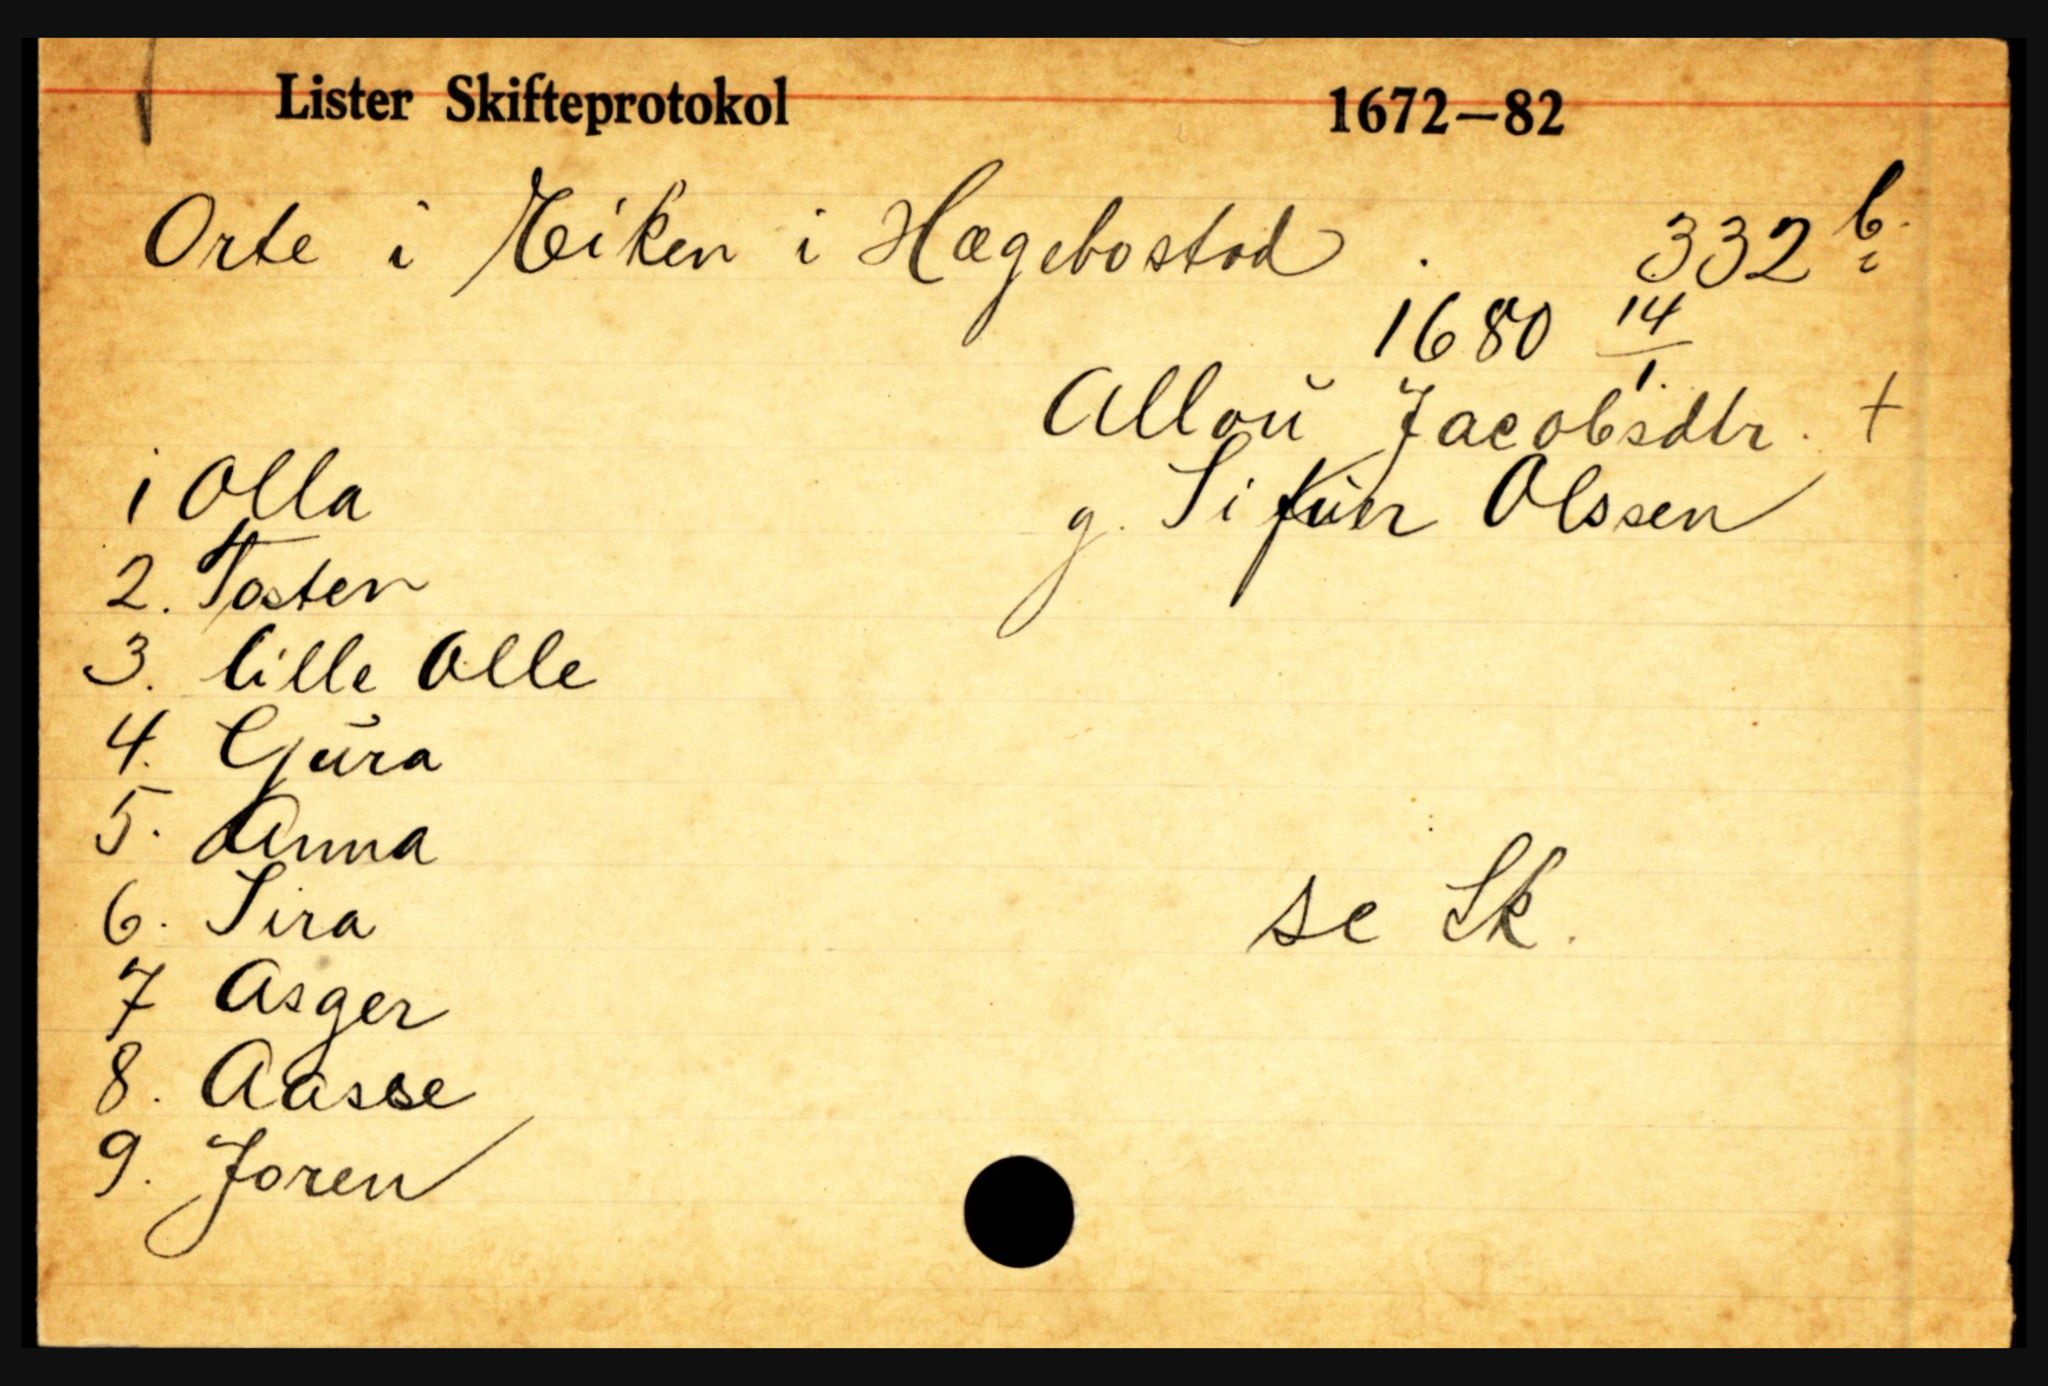 Lister Skifteprotokol 1672—82
Orte i Eiken i Hægebostad . 332 b.
1680 14/1.
Alloŭ Jacobsdtr. +
g. Olssen
1 Olla
2. Tosten
3. lille Olle
4. Gjŭra
5. Anna
6. Sira
7 Asger
8. Aasse
9. Joren
se Sk.